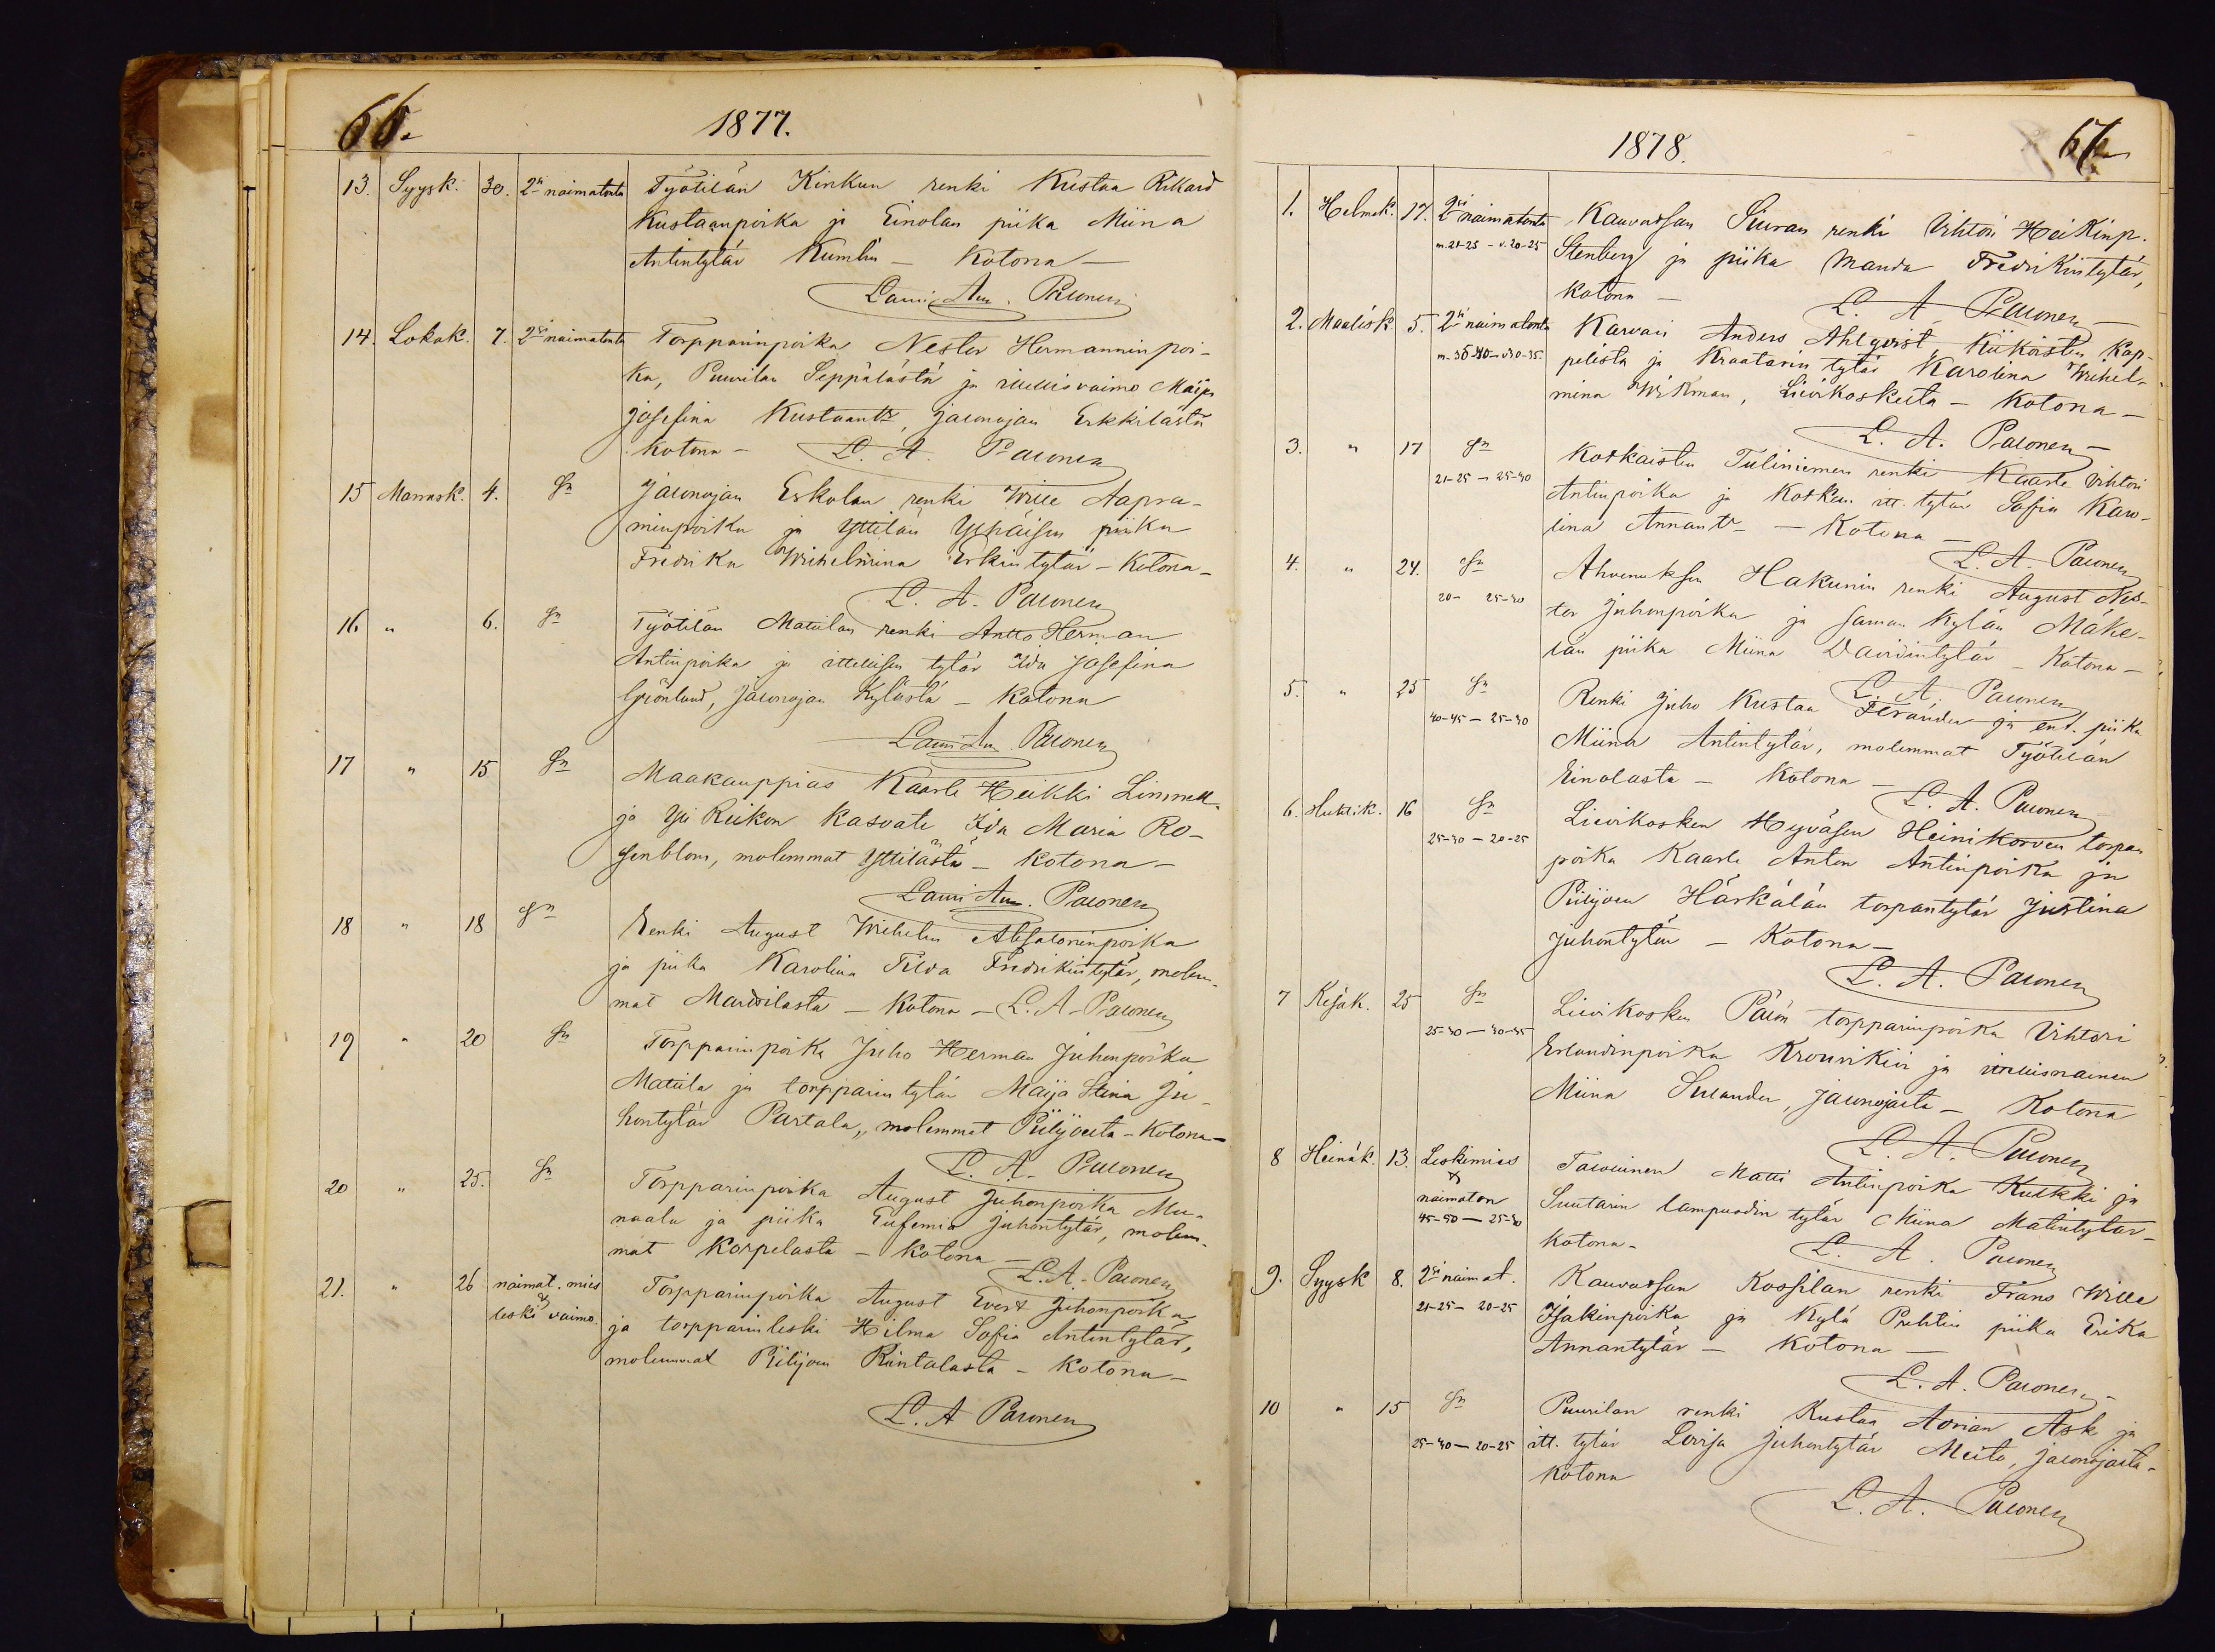 66.
1877.
13. Syysk. 30. 2si naimatonta Työtilän Kinkun renki Kustaa Rikard
Kustaanpoika ja Einolan piika Miina
Antintytär Kumlin — Kotona —
Lauri Aug. Palonen
14. Lokak. 7. 2si naimatonta Torpparinpoika Nestor Hermannin poi-
ka, Puurilan Seppälästä ja itellisvaimo Maija
Josefina Kustaantr, Jalonojan Erkkilästä
Kotona — L. A. Palonen
15 Marrask. 4. Sn Jalonojan Eskolan renki Wille Aapra-
minpoika ja Yttilän piika
Fredrika Wilhelmiina Erkintytär — Kotona —
L. A. Palonen
16 " 6. Sn Työtilän Matulan renki Antto Herman
Antinpoika ja ittellisen tytär Ida Josefina
Grönlund, Jalonojan Kylästä — Kotona
Lauri Aug. Palonen
17 " 15 Sn Maakauppias Kaarle Heikki
ja Yli Riikon kasvate Ida Maria Ro-
senblom, molemmat Yttilästä — Kotona —
Lauri Aug. Palonen
18 " 18 Sn Renki August Wilhelm Absaloninpoika
ja piika Karolina Tilda Fredrikintytär, molem-
mat Mauvilasta — Kotona — L. A. Palonen
19 " 20 Sn Torpparinpoika Juho Herman Juhonpoika
Matula ja torpparin tytär Maija Stina Ju-
hontytär Partala, molemmat Piilijoelta — Kotona —
L. A. Palonen
20 " 25. Sn Torpparinpoika August Juhonpoika Mu-
naala ja piika Eufemia Juhontytär, molem-
mat Korpelasta — Kotona —
L. A. Palonen
21. " 26 naimat. mies Torpparinpoika August Evert Juhonpoika
leski vaimo. ja torpparin leski Hilma Sofia Antintytär,
molemmat Piilijoen Rintalasta — Kotona —
L. A Palonen
1878.
67
1. Helmik. 17. 2si naimatonta Kauvatsan Siuran renki Vihtori Heikinp.
m. 21-25 - v. 20-25 Stenberg ja piika Manda Fredrikintytär,
Kotona — L. A Palonen —
2. Maalisk 5. 2si naimatonta Karvari Anders Ahlqvist, Kiikoisten Kap-
m. 35-40 - v 30-35 pelista ja Kraatarin tytär Karolina Wilhel-
mina Wikman, Lievikoskelta — Kotona —
L. A. Palonen —
3. " 17 Sn Kotkaisten Tuliniemen renki Kaarle Vihtori
21-25 — 25-30 Antinpoika ja itt. tytär Sofia Karo-
lina Annantr — Kotona —
L. A. Palonen
4. " 24. Sn Ahvenuksen Hakunin renki August Nes-
20- 25-30 tor Juhonpoika ja saman Kylän Mäke-
län piika Miina Daavidintytär — Kotona —
L. A. Palonen
5. " 25 Sn Renki Juho Kustaa ja ent. piika
40-45 — 25-30 Miina Antintytär, molemmat Työtilän
Einolasta — Kotona —
L. A. Palonen
6. Huhtik. 16 Sn Lievikosken Hyväsen Heinikorven torpan
25-30 — 20-25 poika Kaarle Anton Antinpoika ja
Piilijoen Härkälän torpantytär Justina
Juhontytär — Kotona —
L. A. Palonen
7 Kesäk. 25 Sn Lievikosken torpparinpoika Vihtori
25-30 — 30-35 Erlandinpoika ja itellisnainen
Miina Sulander, Jalonojalta — Kotona
L. A. Palonen
8 Heinäk. 13. Leskimies Talollinen Matti Antinpoika Kulkki ja
naimaton Suutarin lampuodin tytär Miina Matintytär —
45-50 — 25-30 Kotona —
L. A. Palonen
9. Syysk 8. 2si naimat. Kauvatsan Kossilan renki Frans Wille
21-25 — 20-25 Isakinpoika ja Kylä Prehtin piika Erika
Annantytär — Kotona —
L. A. Palonen —
10 " 15 Sn Puurilan renki Kustaa Adrian Ask ja
25-30 — 20-25 itt. tytär Lovisa Juhontytär Meito, Jalonojalta —
Kotona
L. A. Palonen